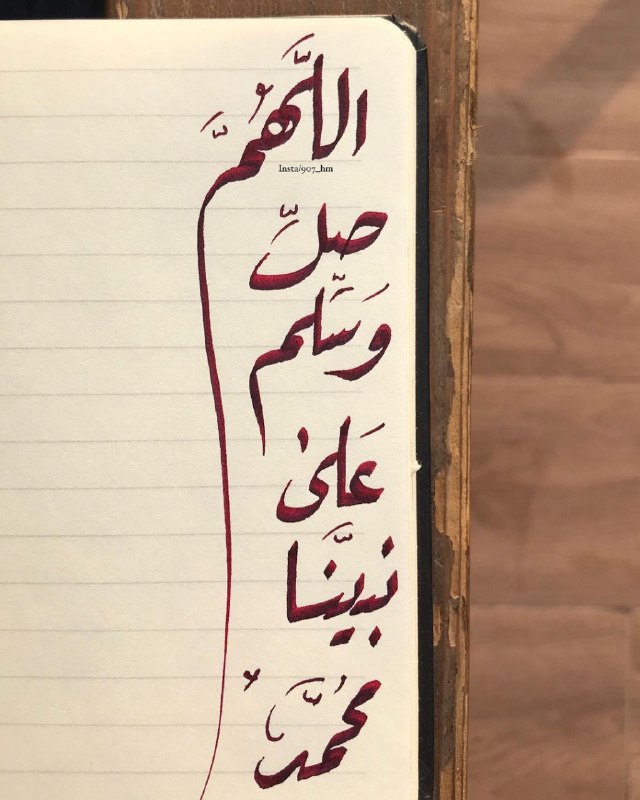 اللَّهُمَّ
Insta/907_hm
صلِّ
وَسَلّم
عَلىٰ
نبيَّنا
مُحمَّدٌ